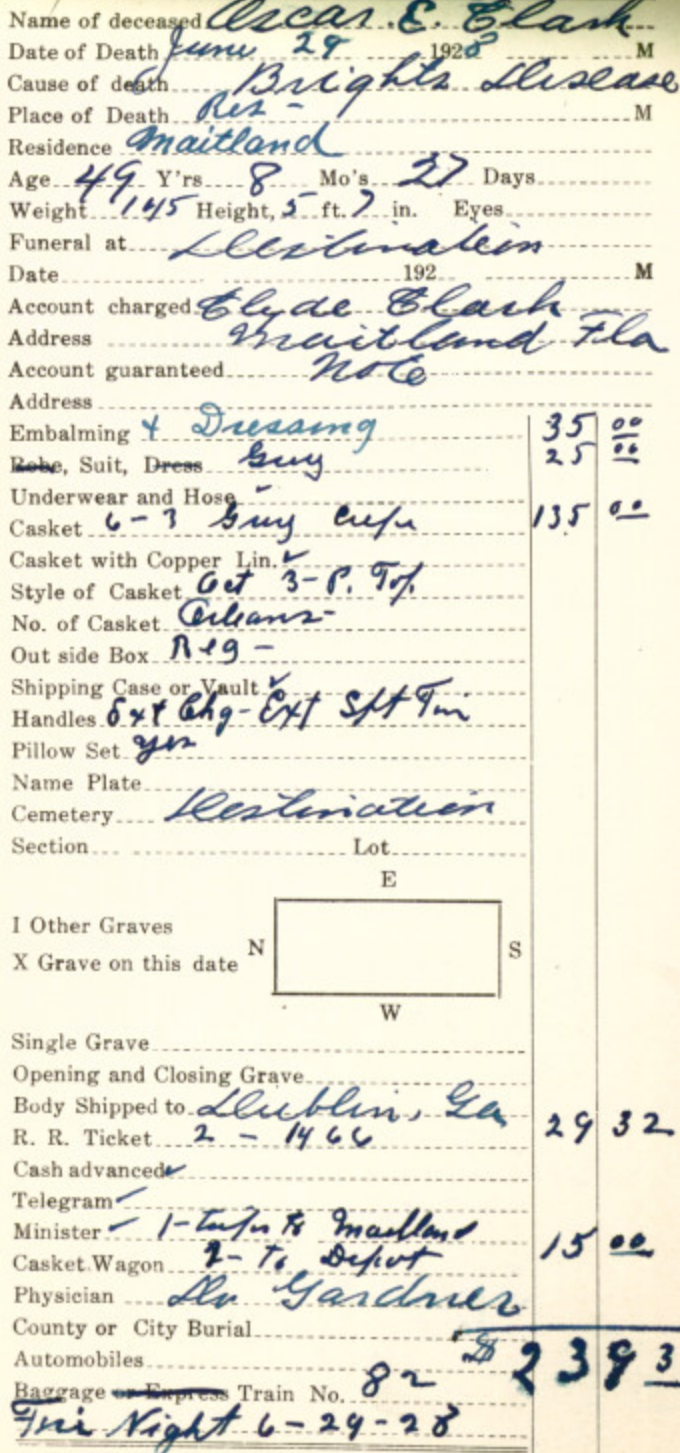 Name of deceased Oscar E. Clark
Date of Death June 29 1928 M
Cause of death Brights Disease
Place of Death Res - M
Residence Maitland
Age 49 Y'rs 8 Mo's 27 Days
Weight 145 Height, 5 ft. 7 in. Eyes
Funeral at Destination
Date 192 M
Account charged Clyde Clark
Address Maitland Fla
Account guaranteed Note
Address
Embalming + Dressing 35 00
Robe, Suit, Dress Grey 25 00
Underwear and Hose -
Casket 6-3 Grey Crepe 135 00
Casket with Copper Lin. ✓
Style of Casket Oct 3-P. Top
No. of Casket Orleans -
Out side Box Reg -
Shipping Case or Vault ✓
Handles Ext Chg - Ext
Pillow Set yes
Name Plate
Cemetery Destination
Section Lot
E
I Other Graves
N S
X Grave on this date
W
Single Grave
Opening and Closing Grave
Body Shipped to Dublin, Ga
R. R. Ticket 2 - 1466 29 32
Cash advanced ✓
Telegram ✓
Minister ✓ 1- to Maitland
Casket Wagon 2- To Depot 15 00
Physician Dr Gardner
County or City Burial
Automobiles $ 239 3
Baggage or Express Train No. 82
Night 6-29-28